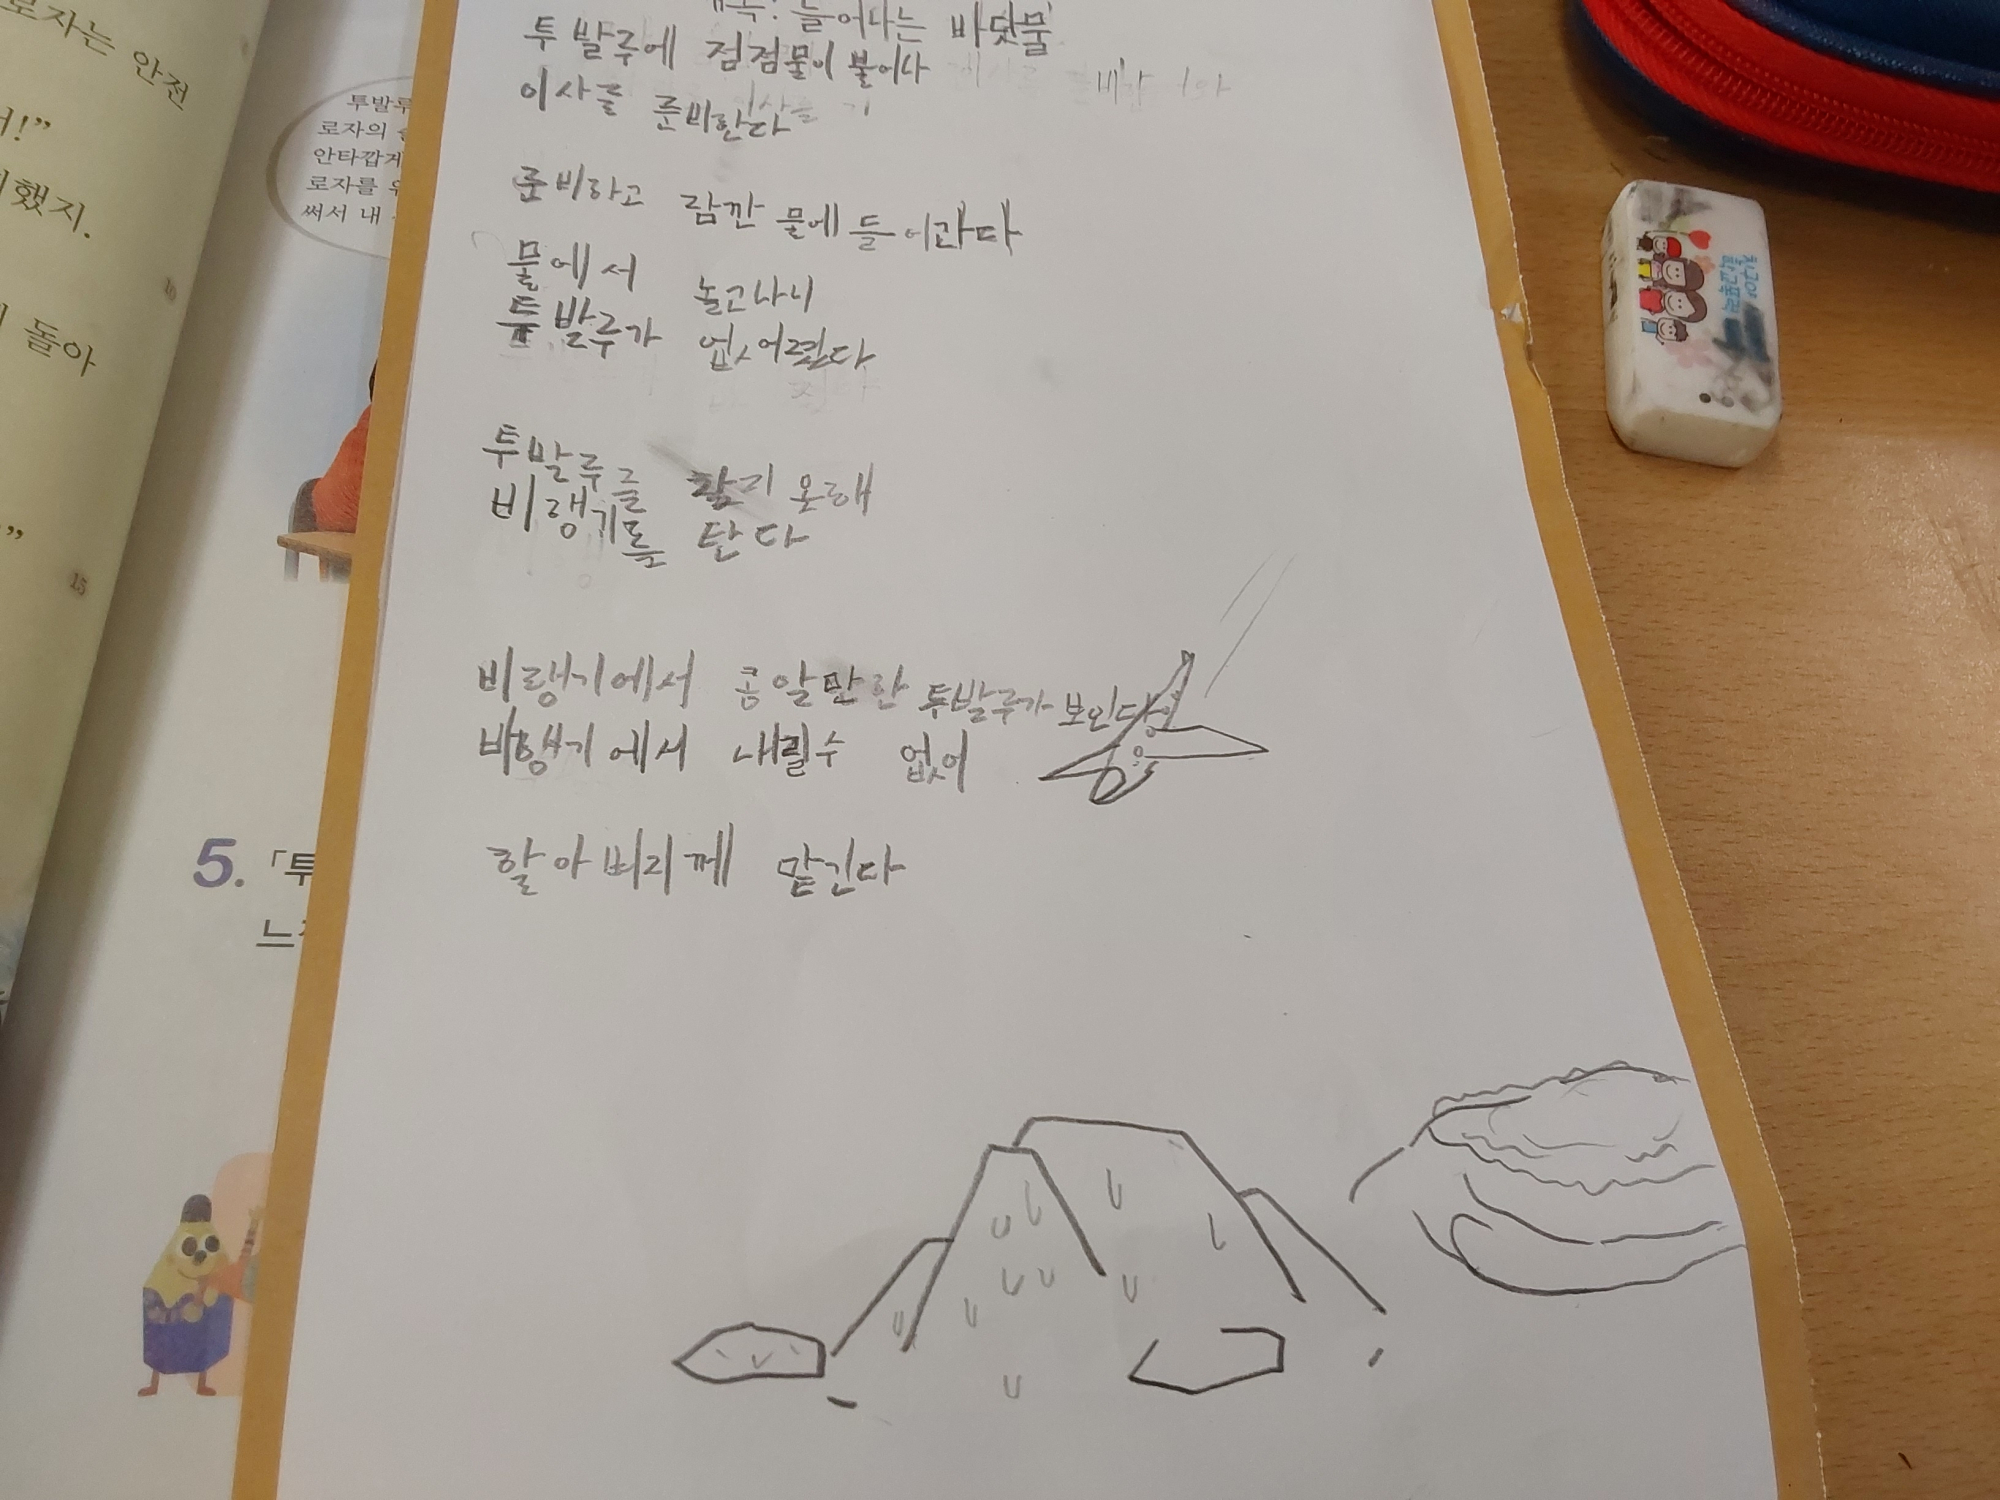 로자는 안전
서!”
했지.
10
돌아
”
15
투발루
로자의
안타깝게
로자를
써서 내
5. 「투
느
제목: 늘어나는 바닷물
투발루에 점점물이 불어나
이사를 준비한다
준비하고 잠깐 물에 들어간다
물에서 놀고나니
투발루가 없어졌다
투발루를 찾지 못해
비행기를 탄다
비행기에서 콩알만한 투발루가 보인다
비행기에서 내릴수 없어
할아버지께 맡긴다